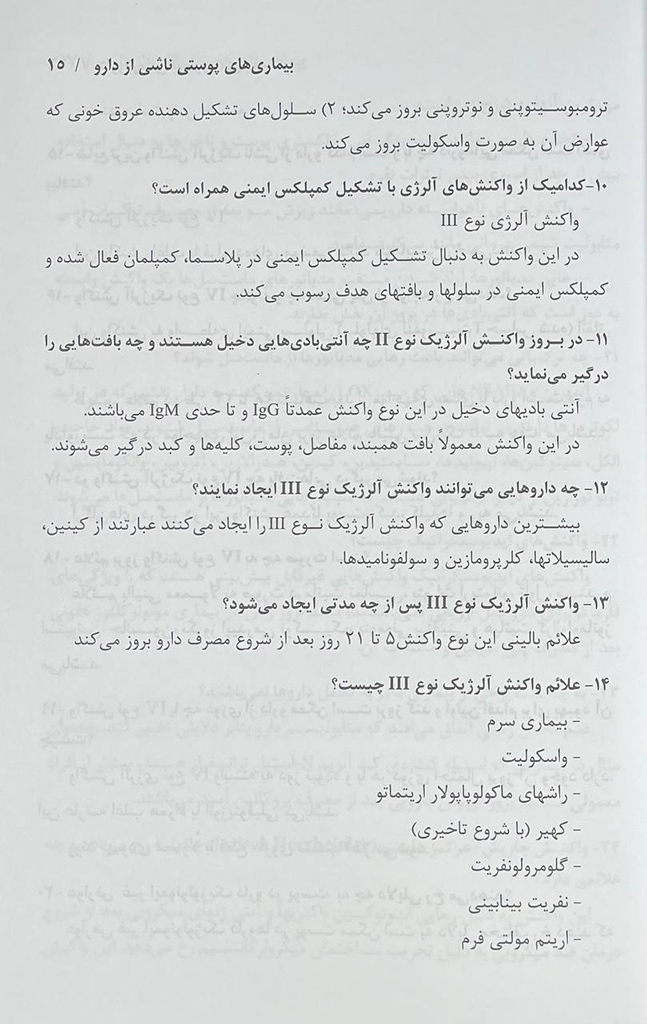 بیماری‌های پوستی ناشی از دارو / ۱۵
ترومبوسیتوپنی و نوتروپنی بروز می‌کند؛ ۲) سلول‌های تشکیل دهنده عروق خونی که
عوارض آن به صورت واسکولیت بروز می‌کند.
۱۰-کدامیک از واکنش‌های آلرژی با تشکیل کمپلکس ایمنی همراه است؟
واکنش آلرژی نوع III
در این واکنش به دنبال تشکیل کمپلکس ایمنی در پلاسما، کمپلمان فعال شده و
کمپلکس ایمنی در سلولها و بافتهای هدف رسوب می‌کند.
۱۱- در بروز واکنش آلرژیک نوع II چه آنتی‌بادی‌هایی دخیل هستند و چه بافت‌هایی را
درگیر می‌نماید؟
آنتی بادیهای دخیل در این نوع واکنش عمدتاً IgG و تا حدی IgM می‌باشند.
در این واکنش معمولاً بافت همبند، مفاصل، پوست، کلیه‌ها و کبد درگیر می‌شوند.
۱۲- چه داروهایی می‌توانند واکنش آلرژیک نوع III ایجاد نمایند؟
بیشترین داروهایی که واکنش آلرژیک نوع III را ایجاد می‌کنند عبارتند از کینین،
سالیسیلاتها، کلرپرومازین و سولفونامیدها.
۱۳- واکنش آلرژیک نوع III پس از چه مدتی ایجاد می‌شود؟
علائم بالینی این نوع واکنش۵ تا ۲۱ روز بعد از شروع مصرف دارو بروز می‌کند
۱۴- علائم واکنش آلرژیک نوع III چیست؟
- بیماری سرم
- واسکولیت
- راشهای ماکولوپاپولار اریتماتو
- کهیر (با شروع تاخیری)
- گلومرولونفریت
- نفریت بینابینی
- اریتم مولتی فرم